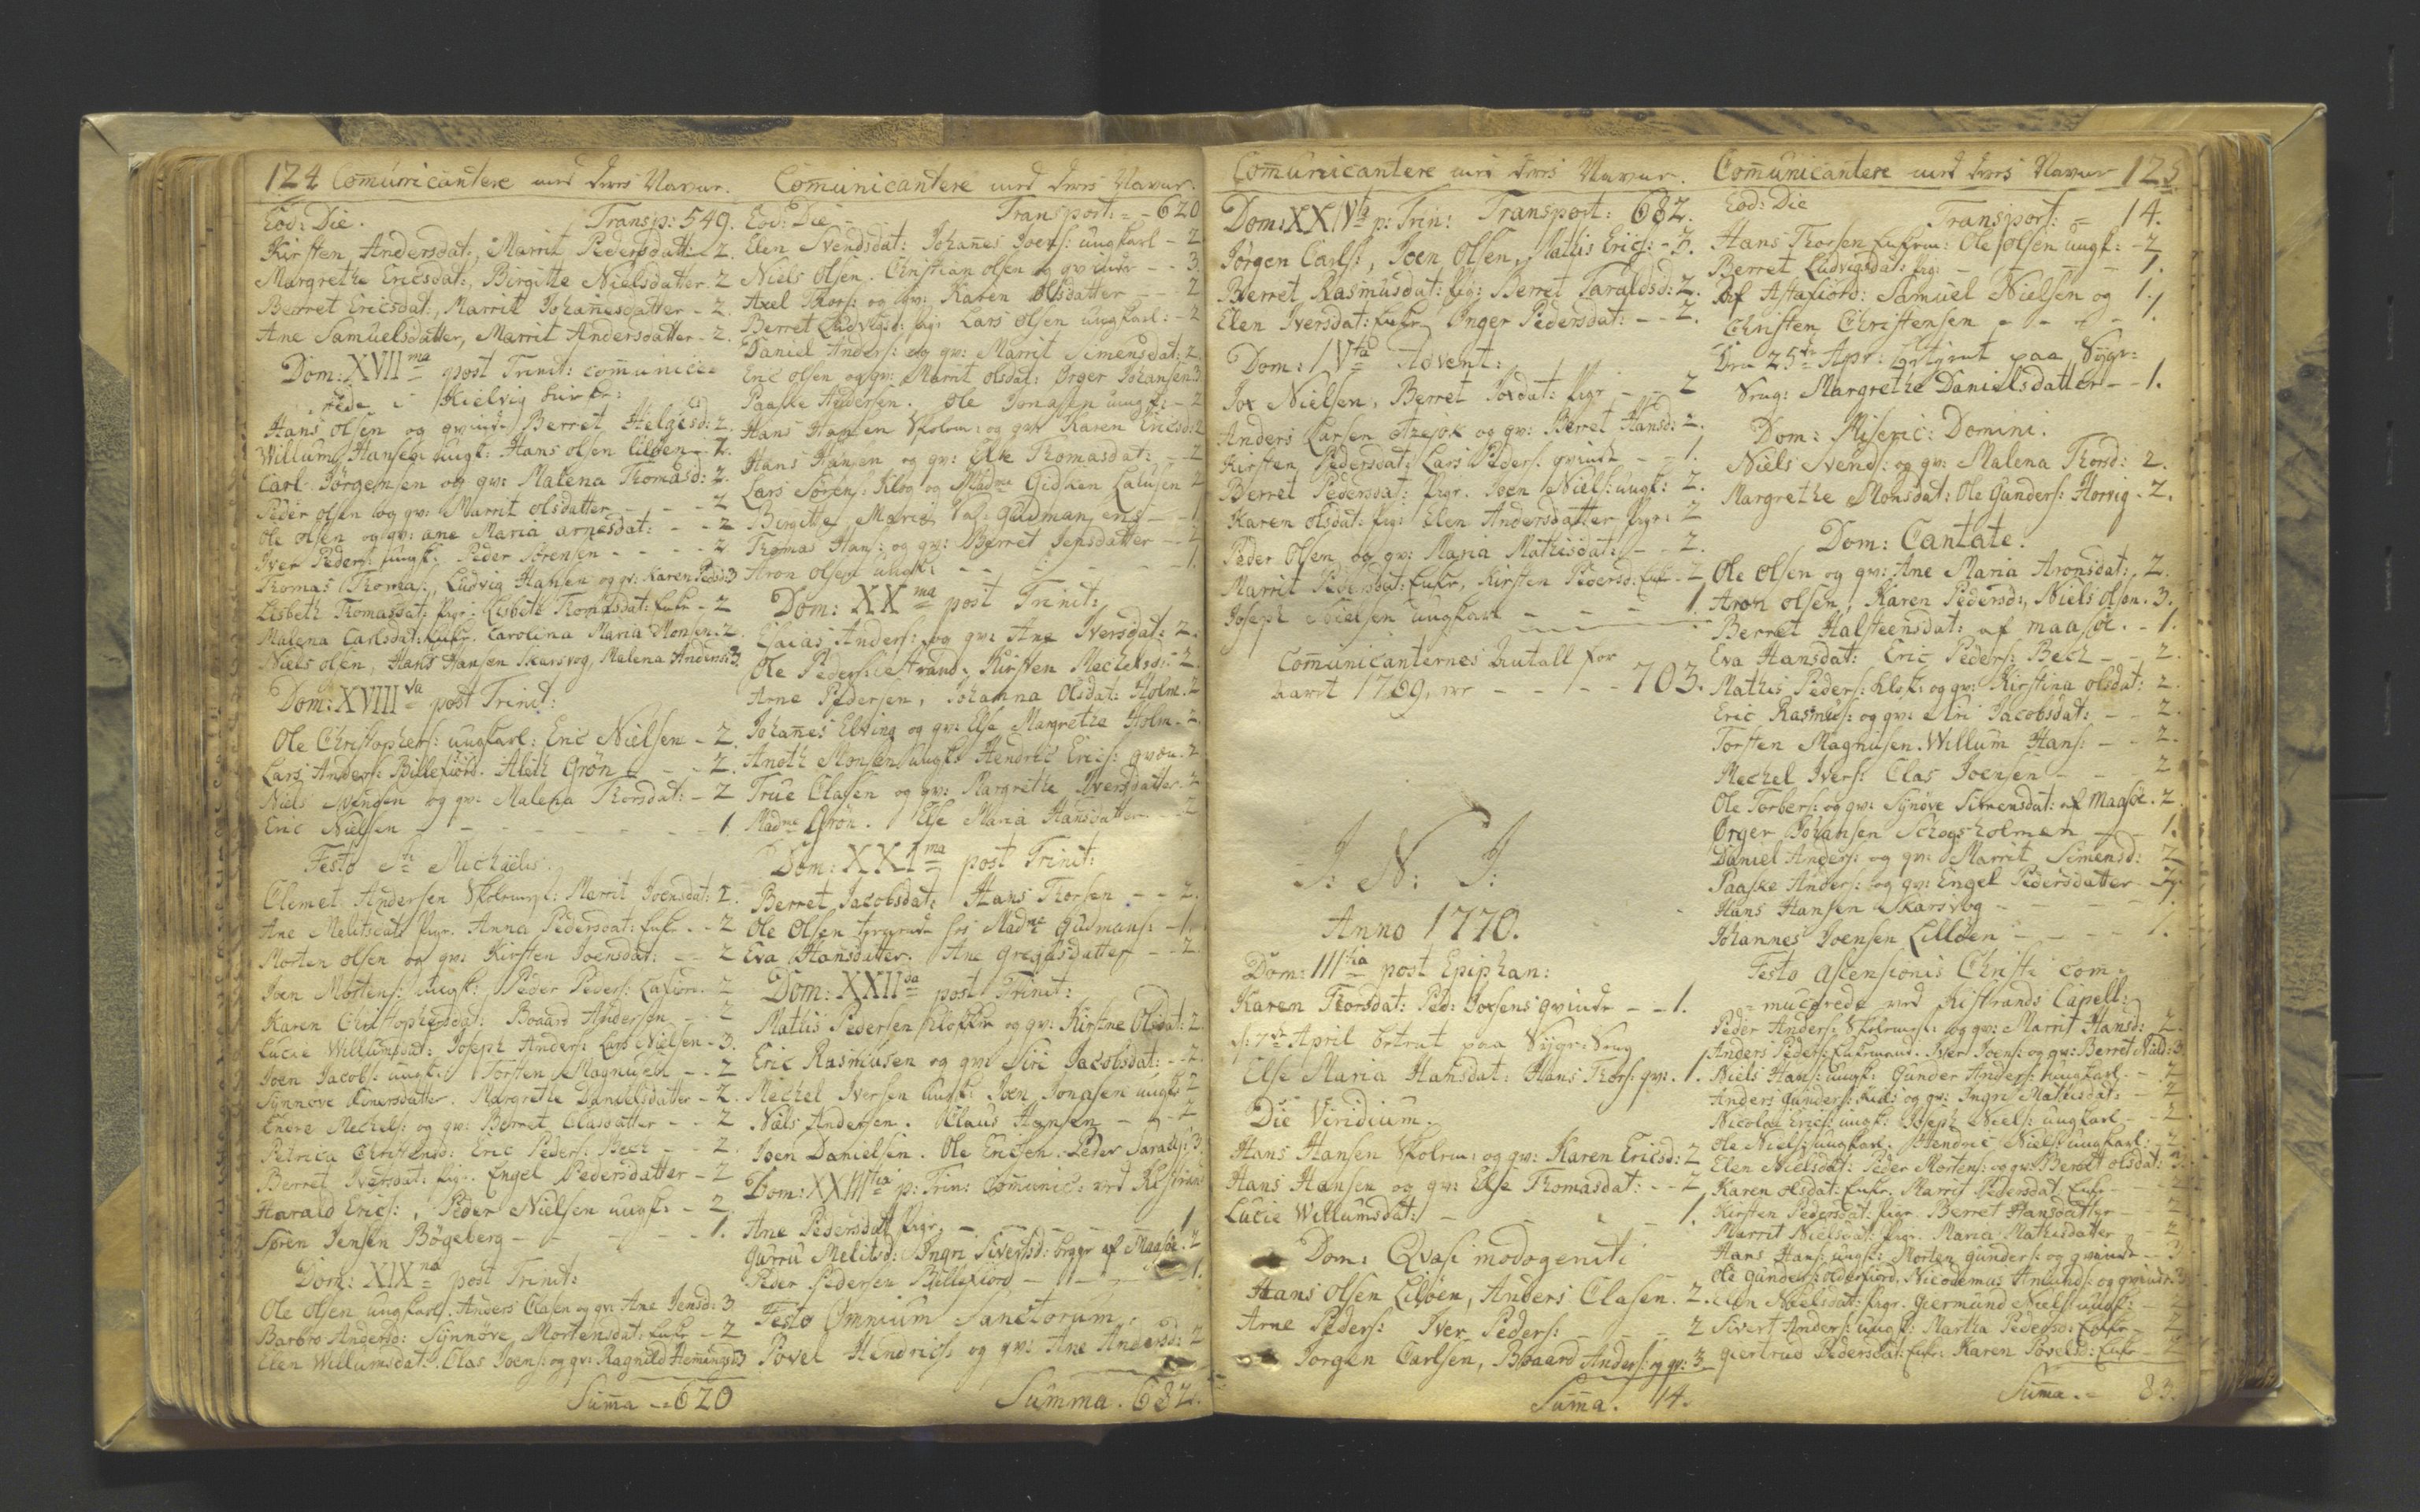 124 Com̄unicantere med deres Navne.
Eod: Die. Transp: 549.
Kirsten Andersdat:, Marrit Pedersdatt: - 2.
Margrethe Ericsdat:, Birgitte Nielsdatter. 2
Berret Ericsdat:, Marrit Johan̄esdatter - 2.
Ane Samuelsdatter, Marrit Andersdatter - 2.
Dom: XVII ma post Trinit: com̄unice-
rede i Kielvig
Hans Olsen og qvinde Berret Helgesd: 2.
Willum Hansen ungk: Hans olsen Lilöen - 2.
Carl Jörgensen og qv: Malena Thomasd: 2.
Peder olsen og qv: Marrit olsdatter - - - 2
Ole olsen og qv: ane Maria arnesdat: - - 2
Iver Peders: ungk: Peder Sörensen - - - - 2.
Thomas Thomas:, Ludvig Hansen og qv: Karen Pedsd: 3
Lisbeth Thomasdat: pigr: Lisbeth Thomasdat: Enke - 2
Malena Carlsdat: Enke. Carolina Maria Monsen: 2.
Niels olsen, Hans Hansen Skarsvog, Malena Andersd: 3.
Dom: XVIII va post Trinit:
Ole Christophers: ungkarl: Eric Nielsen - 2.
Lars Anders: Billefiord. Aleth Grön - - - 2.
Niels Svendsen og qv: Malena Thorsdat: - 2
Eric Nielsen - - - - - - - - 1.
Festo Sti Michaëlis.
Clemet Andersen Skolem: Marrit Joensdat: 2.
Ane Melitsdat: pigr. Anna Pedersdat: Enke - - 2
Morten olsen og qv: Kirsten Joensdat: - - 2
Joen Mortens: ungk: Peder Peders: - 2
Karen Christophersdat: Boaard Andersen - - 2
Lucie Willumsdat: Joseph Anders: Lars Nielsen - 3.
Joen Jacobs: ungk: Torsten Magnusen - - 2
Synnove Einersdatter. Margrethe Danielsdatter - 2.
Endre Mechels: og qv: Berret Clasdatter - - 2
Petrica Christensd: Eric Peders: Bech - - - 2.
Berret Iversdat: pigr. Engel Pedersdatter - 2
Harald Erics:, Peder Nielsen ungk: - 2.
Sören Jensen Bögeberg - - - - - 1.
Dom: XIX na post Trinit:
Ole Olsen ungkarl. Anders Clasen og qv: Ane Jensd: 3
Barbro Andersd: Synnöve Mortensdat: Enke - 2
Elen Willumsdat: Clas Joens: og qv: Ragnild Hemingsd: 3
Sum̄a - - 620
Com̄unicantere med deres Navne.
Eod: Die - - Transport: - - 620
Elen Svendsdat: Johan̄es Joens: ungkarl - 2
Niels Olsen. Christian olsen og qvinde - - 3.
Axel Thors: og qv: Karen Olsdatter - - 2
Berret Ludvigsd: pigr: Lars Olsen ungkarl: - 2
Daniel Anders: og qv: Marrit Simensdat: 2.
Eric olsen og qv: Marit olsdat: Örger Johansen 3
Paaske Andersen. Ole Jonasen ungk: - 2
Hans Hansen Skolem: og qv: Karen Ericsd: 2
Hans Hansen og qv: Else Thomasdat: - - 2
Lars Sörens: Klog og Madme Gidsken Lalusen 2
Birgitte Maria Gudman ens - - 1
Thomas Hans: og qv: Berret Jensdatter - - 2
Aron olsen ungk: - - - - - - 1.
Dom: XX ma post Trinit:
Esaias Anders: og qv: Ane Iversdat: 2.
Ole Peders: Strand. Kirsten Mechelsd: - 2.
Arne Pedersen, Johanna Olsdat: Holm. 2
Johan̄es Elving og qv: Else Margrethe Holm - 2.
Aneth Monsen ungk: Hendric Erics: qvæn. 2
True Clasen og qv: Margrethe Iversdatter. 2
Madme Grön. Else Maria Hansdatter - - 2
Dom: XXI ma post Trinit:
Berret Jacobsdat: Hans Thorsen - - 2.
Ole Olsen hos Madme Gudmans: - 1.
Eva Hansdatter. Ane Gregusdatter - - 2.
Dom: XXII da post Trinit:
Mathis Pedersen Klokker og qv: Kirstine Olsdat: 2.
Eric Rasmusen og qv: Siri Jacobsdat: - 2.
Mechel Iversen ungk: Joen Jonasen ungk: 2
Niels Andersen. Claus Hansen - - - 2
Joen Danielsen. Ole Ericsen. Peder Saralds: 3
Dom: XXIII tia p: Trin: Com̄unic: ved Kistrand
Ane Pedersdatt pigr. - - - - - - 1
Gurru Melitsd: Ingri Sivertsd: begge af Maasöe. 2
Peder Pedersen Billefiord - - - - 1.
Festo Omnium Sanctorum.
Povel Hendrics: og qv: Ane Andersd: 2
Summa. 682.
Com̄unicantere med deres Navne.
Dom: XXIV ta p: Trin: Transport: 682.
Jörgen Carls:, Joen Olsen, Mathis Erics: - 3.
Berret Rasmusdat: pig: Berret Taraldsd: 2.
Elen Iversdat: Enke Inger Pedersdat: - - 2.
Dom: IV ta Advent:
Jox Nielsen, Berret Joxdat: pigr - - 2
Anders Larsen Azejok og qv: Beret Hansd: 2.
Kirsten Pedersdat: Lars Peders: qvinde - - 1.
Berret Pedersdat: pigr. Joen Niels: ungk: 2.
Karen Olsdat: pig: Elen Andersdatter pigr: 2
Peder Olsen og qv: Maria Mathisdat: - - 2.
Marrit Pedersdat: Enke, Kirsten Pedersd: Enke - 2
Joseph Nielsen ungkarl - - - - 1.
Com̄unicanternes Antall for
Aaret 1769, er - - - - 703.
I: N: J:
Anno 1770.
Dom: III tia post Epiphan:
Karen Thorsdat: Ped: Joxsens qvinde - - 1.
d: 7de April betient paa Syge-Seng
Else Maria Hansdat: Hans Thors: qv: 1.
Die Viridium.
Hans Hansen Skolem: og qv: Karen Ericsd: 2
Hans Hansen og qv: Else Thomasdat: - - 2
Lucie Willumsdat: - - - - 1.
Dom: Qvasi modogeniti
Hans Olsen Lilöen, Anders Clasen. 2.
Arne Peders: Iver Peders: - - - 2
Jorgen Carlsen, Boaard Anders: og qv: 3.
Sum̄a. 14.
Com̄unicantere med deres Navne 125
Eod: Die Transport: - 14.
Hans Thorsen Enkem: Ole Olsen ungk: - 2
Berret Ludvigsdat: pig: - - - - 1.
Af Astafiord: Samuel Nielsen og 1.
Christen Christensen - - - - 1.
Den 25de Apr: betient paa Syge-
Seng: Margrethe Danielsdatter - - 1.
Dom: Miseric: Domini.
Niels Svends: og qv: Malena Thorsd: 2.
Margrethe Monsdat: Ole Gunders: Honvig - 2.
Dom: Cantate.
Ole Olsen og qv: Ane Maria Aronsdat: 2.
Aron olsen, Karen Pedersd:, Niels Olsen. 3.
Berret Halsteensdat: af maasöe. - 1.
Eva Hansdat: Eric Peders: Bech - - 2.
Mathis Peders: klok: og qv: Kirstina olsdat: 2.
Eric Rasmus: og qv: Siri Jacobsdat: - - 2.
Torsten Magnusen. Willum Hans: - - 2.
Mechel Ivers: Clas Joensen - - - 2
Ole Torbers: og qv: Synöve Simensdat: af Maasöe. 2.
Örger Johansen Schogsholmen - - 1.
Daniel Anders: og qv: Marrit Simensd: 2
Paaske Anders: og qv: Engel Pedersdatter - 2.
Hans Hansen Skarsvog - - - - 1.
Johannes Joensen Lillöen - - - - 1.
Festo Ascensionis Christi com̄-
-municerede ved Kistrands Capell:
Peder Anders: Skolem: og qv: Marrit Hansd: 2.
Anders Peders: Enkemand. Iver Joens: og qv: Berret Nilsd: 3
Niels Hans: ungk: Gunder Anders: ungkarl - 2
Anders Gunders: og qv: Ingri Mathisdat: - 2
Nicolai Erics: ungk: Joseph Niels: ungkarl - - 2
Ole Niels: ungkarl. Hendric Niels: ungkarl: - 2
Elen Nielsdat: Peder Mortens: og qv: Beret olsdat: 3.
Karen olsdat: Enke. Marrit Pedersdat: Enke - - 2
Kirsten Pedersdat: pigr. Berret Hansdatter - - 2
Marrit Nielsdat: pigr. Maria Mathisdatter - - 2
Hans Hans: ungk: Morten Gunders: og qvinde - 3
Ole Gunders: olderfiord. Nicodemus Amunds: og qvinde 3
Elen Nielsdat: pigr. Giermund Niels: ungk: - 2
Sivert Anders: ungk: Martha Pedersd: Enke - 2
Giertrud Pedersdat: Enke: Karen Povelsd: Enke - 2
Sum̄a. - 83.